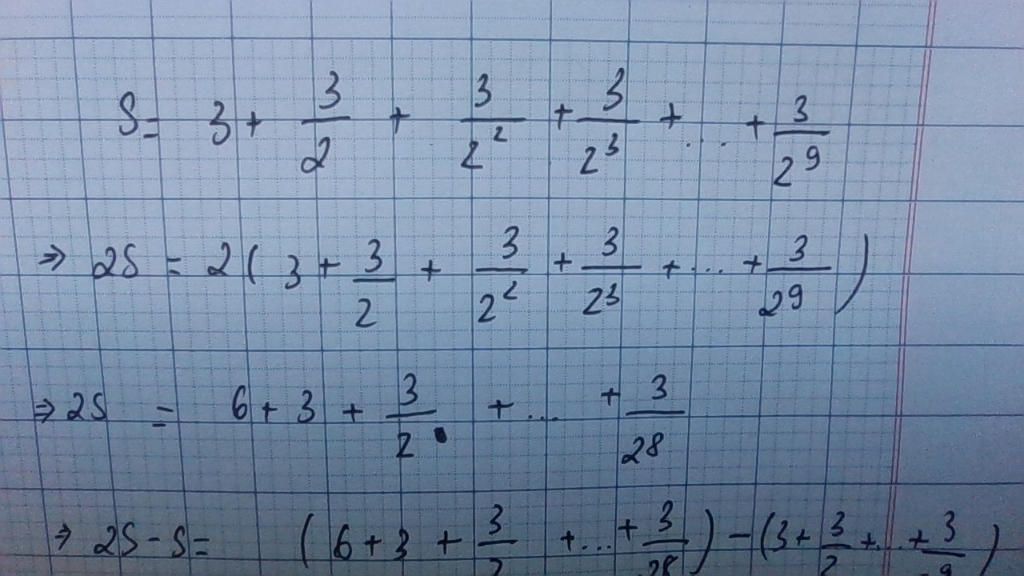 S = 3 + 3/2 + 3/2² + 3/2³ + ... + 3/2⁹
⇒ 2S = 2(3 + 3/2 + 3/2² + 3/2³ + ... + 3/2⁹)
⇒ 2S = 6 + 3 + 3/2 + ... + 3/2⁸
⇒ 2S - S = (6 + 3 + 3/2 + ... + 3/2⁸) - (3 + 3/2 + ... + 3/2⁹)